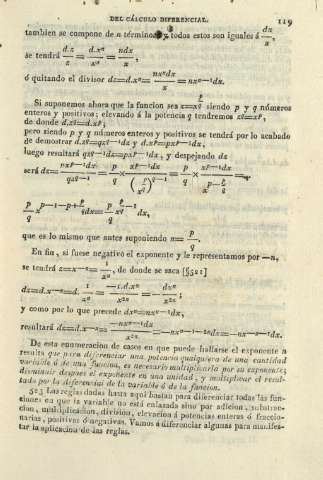 DEL CÁLCULO DIFERENCIAL. 119
tambien se compone de n términos y todos estos son iguales á dx/x,
se tendrá d.z/z = d.xⁿ/xⁿ = ndx/x,
ó quitando el divisor dz=d.xⁿ= nxⁿdx/x =nxⁿ⁻¹dx.
Si suponemos ahora que la funcion sea z=x^(p/q) siendo p y q números
enteros y positivos; elevando á la potencia q tendremos z^q=x^p,
de donde d.z^q=d.x^p;
pero siendo p y q números enteros y positivos se tendrá por lo acabado
de demostrar d.z^q=qz^(q-1)dz y d.x^p=px^(p-1)dx,
luego resultará qz^(q-1)dz=px^(p-1)dx, y despejando dz
será dz= px^(p-1)dx/qz^(q-1) = p/q × x^(p-1)dx/(x^(p/q))^(q-1) = p/q × x^(p-1)dx/x^(p-p/q) =
p/q x^(p-1-p+p/q)dx= p/q x^(p/q-1) dx,
que es lo mismo que antes suponiendo n= p/q.
En fin, si fuese negativo el exponente y le representamos por —n,
se tendrá z=x⁻ⁿ= 1/xⁿ, de donde se saca [§521]
dz=d.x⁻ⁿ=d. 1/xⁿ = —1.d.xⁿ/x²ⁿ = — dxⁿ/x²ⁿ;
y como por lo que precede dxⁿ=nxⁿ⁻¹dx,
resultará dz=d.x⁻ⁿ= —nxⁿ⁻¹dx/x²ⁿ =—nxⁿ⁻¹⁻²ⁿdx=—nx⁻ⁿ⁻¹dx.
De esta enumeracion de casos en que puede hallarse el exponente n
resulta que para diferenciar una potencia qualquiera de una cantidad
variable ó de una funcion, es necesario multiplicarla por su exponente;
disminuir despues el exponente en una unidad, y multiplicar el resul-
tado por la diferencial de la variable ó de la funcion.
523 Las reglas dadas hasta aquí bastan para diferenciar todas las fun-
ciones en que la variable no está enlazada sino por adicion, substrac-
cion, multiplicacion, division, elevacion á potencias enteras ó fraccio-
narias, positivas ó negativas. Vamos á diferenciar algunas para manifes-
tar la aplicacion de las reglas.